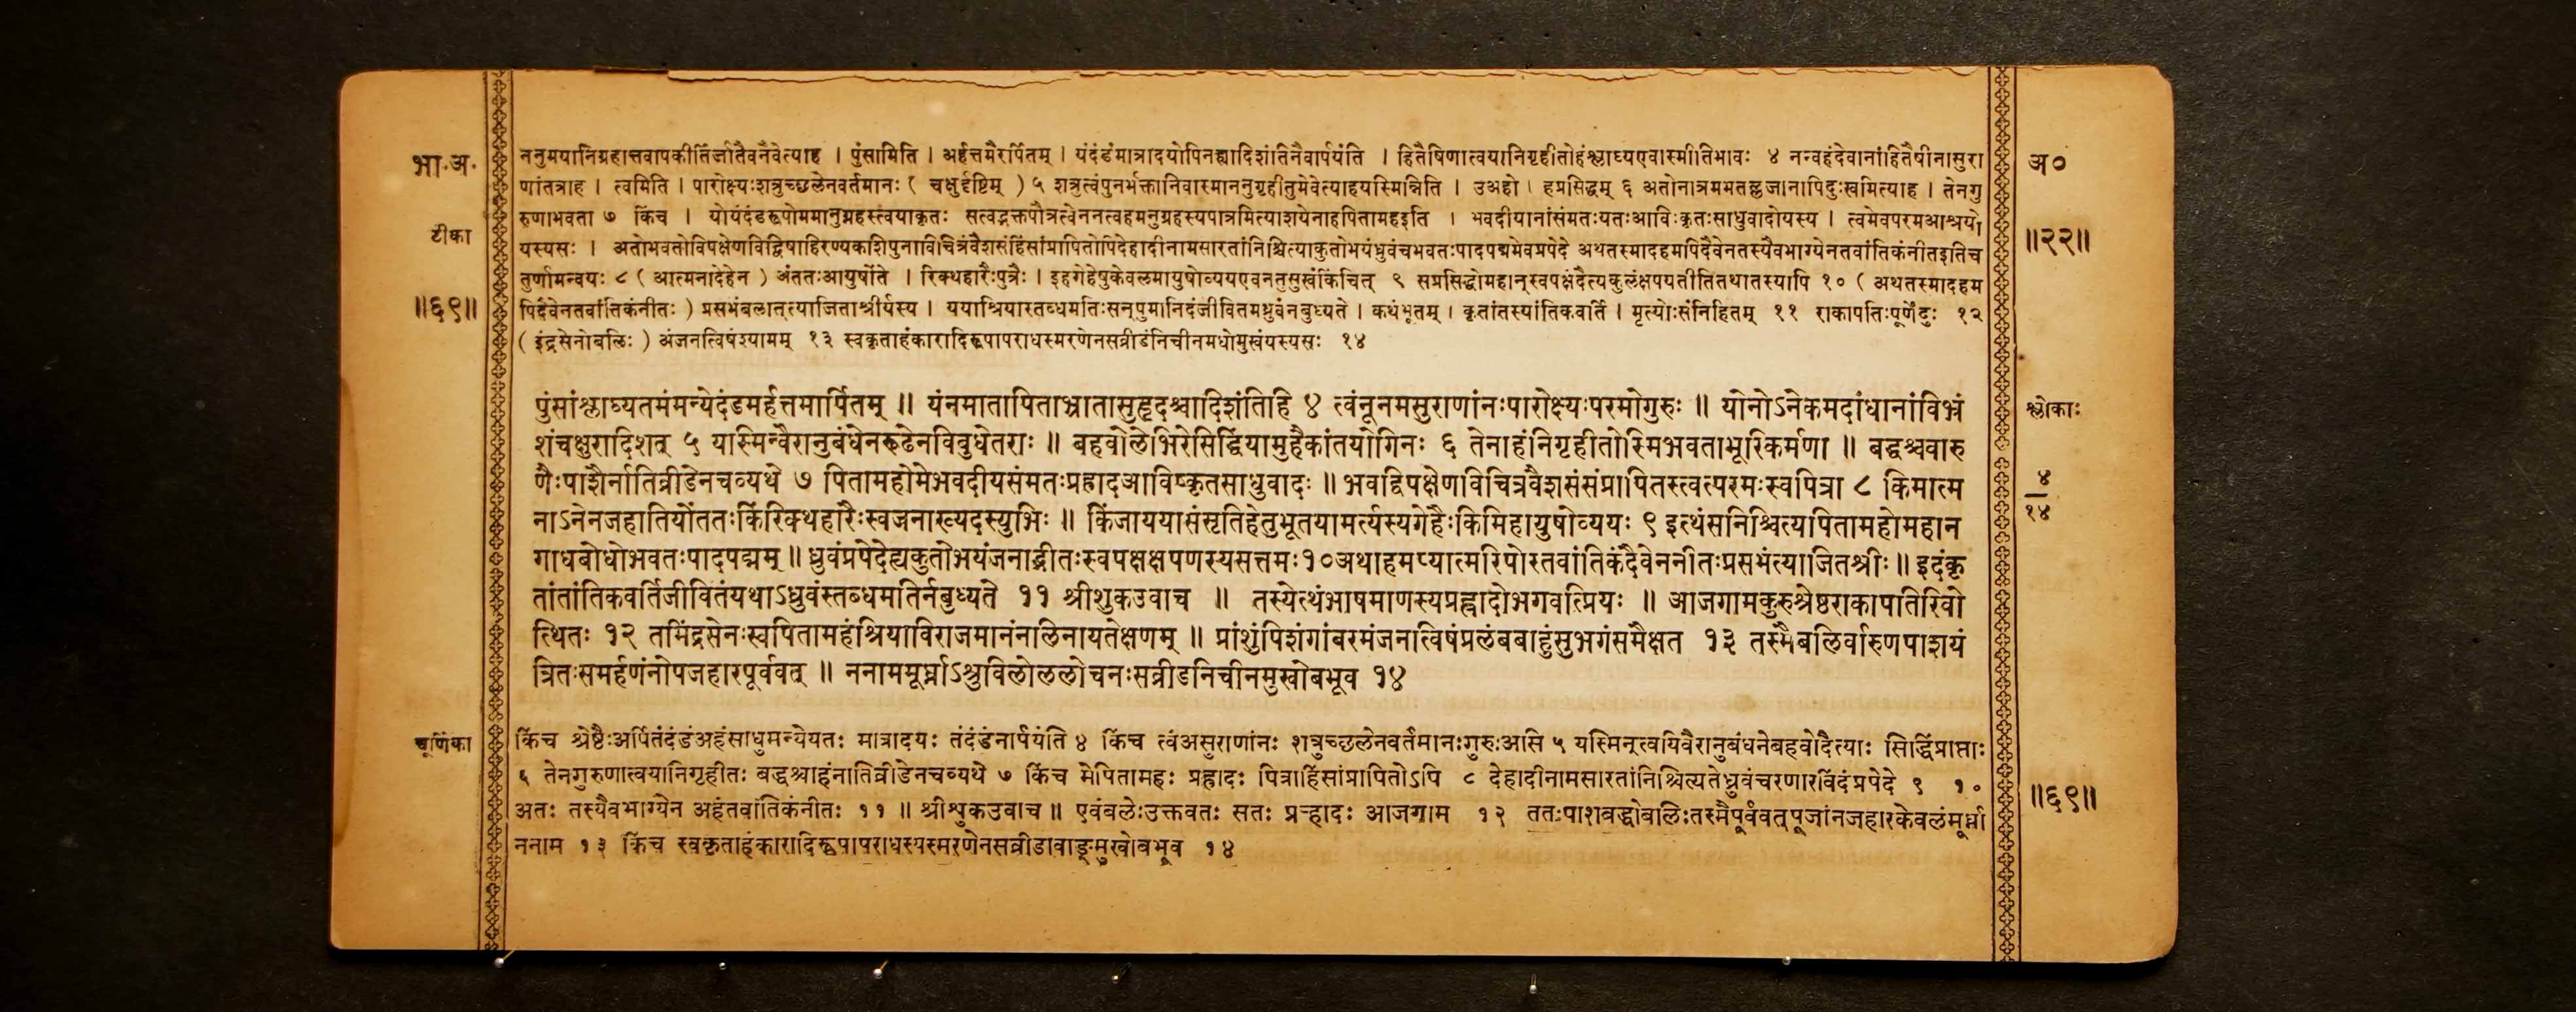 भा.अ.
टीका
॥६९॥
चूर्णिका
ननुमयानिग्रहात्तवापकीर्तिर्जातैवनैवेत्याह । पुंसामिति । अर्हत्तमैरर्पितम् । यंदंडंमात्रादयोपिनह्यादिशंतिनैवार्पयंति । हितैषिणात्वयानिगृहीतोहंश्लाघ्यएवास्मीतिभावः ४ नन्वहंदेवानांहितैषीनासुरा
णांतत्राह । त्वमिति । पारोक्ष्यःशत्रुच्छलेनवर्तमानः ( चक्षुर्दृष्टिम् ) ५ शत्रुत्वंपुनर्भक्तानिवास्माननुगृहीतुमेवेत्याहयस्मिन्निति । उअहो । हप्रसिद्धम् ६ अतोनात्रममतल्लज्जानापिदुःखमित्याह । तेनगु
रुणाभवता ७ किंच । योयंदंडरूपोममानुग्रहस्त्वयाकृतः सत्वद्भक्तपौत्रत्वेननत्वहमनुग्रहस्यपात्रमित्याशयेनाहपितामहइति । भवदीयानांसंमतःयतःआविःकृतःसाधुवादोयस्य । त्वमेवपरमआश्रयो
यस्यसः । अतोभवतोविपक्षेणविद्विषाहिरण्यकशिपुनाविचित्रंवैशसंहिंसांप्रापितोपिदेहादीनामसारतांनिश्चित्याकुतोभयंध्रुवंचभवतःपादपद्ममेवप्रपेदे अथतस्मादहमपिदैवेनतस्यैवभाग्येनतवांतिकंनीतइतिच
तुर्णामन्वयः ८ ( आत्मनादेहेन ) अंततःआयुषोंते । रिक्थहारैःपुत्रैः । इहगेहेषुकेवलमायुषोव्ययएवनतुसुखंकिंचित् ९ सप्रसिद्धोमहान्स्वपक्षंदैत्यकुलंक्षपयतीतितथातस्यापि १० ( अथतस्मादहम
पिदैवेनतवांतिकंनीतः ) प्रसभंबलात्त्याजिताश्रीर्यस्य । ययाश्रियास्तब्धमतिःसन्पुमानिदंजीवितमध्रुवंनबुध्यते । कथंभूतम् । कृतांतस्यांतिकवर्ति । मृत्योःसंनिहितम् ११ राकापतिःपूर्णेंदुः १२
( इंद्रसेनोबलिः ) अंजनत्विषंश्यामम् १३ स्वकृताहंकारादिरूपापराधस्मरणेनसव्रीडंनिचीनमधोमुखंयस्यसः १४
पुंसांश्लाघ्यतमंमन्येदंडमर्हत्तमार्पितम् ॥ यंनमातापिताभ्रातासुहृदश्चादिशंतिहि ४ त्वंनूनमसुराणांनःपारोक्ष्यःपरमोगुरुः ॥ योनोऽनेकमदांधानांविभ्रं
शंचक्षुरादिशत् ५ यस्मिन्वैरानुबंधेनरूढेनविबुधेतराः ॥ बहवोलेभिरेसिद्धिंयामुहैकांतयोगिनः ६ तेनाहंनिगृहीतोस्मिभवताभूरिकर्मणा ॥ बद्धश्चवारु
णैःपाशैर्नातिव्रीडेनचव्यथे ७ पितामहोमेभवदीयसंमतःप्रह्रादआविष्कृतसाधुवादः ॥ भवद्विपक्षेणविचित्रवैशसंसंप्रापितस्त्वत्परमःस्वपित्रा ८ किमात्म
नाऽनेनजहातियोंततःकिंरिक्थहारैःस्वजनाख्यदस्युभिः ॥ किंजाययासंसृतिहेतुभूतयामर्त्यस्यगेहैःकिमिहायुषोव्ययः ९ इत्थंसनिश्चित्यपितामहोमहान
गाधबोधोभवतःपादपद्मम् ॥ ध्रुवंप्रपेदेह्यकुतोभयंजनाद्भीतःस्वपक्षक्षपणस्यसत्तमः१०अथाहमप्यात्मरिपोस्तवांतिकंदैवेननीतःप्रसभंत्याजितश्रीः ॥ इदंकृ
तांतांतिकवर्तिजीवितंययाऽध्रुवंस्तब्धमतिर्नबुध्यते ११ श्रीशुकउवाच ॥ तस्येत्थंभाषमाणस्यप्रह्लादोभगवत्प्रियः ॥ आजगामकुरुश्रेष्ठराकापतिरिवो
त्थितः १२ तमिंद्रसेनःस्वपितामहंश्रियाविराजमानंनलिनायतेक्षणम् ॥ प्रांशुंपिशंगांबरमंजनत्विषंप्रलंबबाहुंसुभगंसमैक्षत १३ तस्मैबलिर्वारुणपाशयं
त्रितःसमर्हणंनोपजहारपूर्ववत् ॥ ननाममूर्ध्नाऽश्रुविलोललोचनःसव्रीडनिचीनमुखोबभूव १४
किंच श्रेष्ठैःअर्पितंदंडंअहंसाधुमन्येयतः मात्रादयः तंदंडंनार्पयंति ४ किंच त्वंअसुराणांनः शत्रुच्छलेनवर्तमानःगुरुःअसि ५ यस्मिन्त्वयिवैरानुबंधनेबहवोदैत्याः सिद्धिंप्राप्ताः
६ तेनगुरुणात्वयानिगृहीतः बद्धश्चाहंनातिव्रीडेनचव्यथे ७ किंच मेपितामहः प्रह्रादः पित्राहिंसांप्रापितोऽपि ८ देहादीनामसारतांनिश्चित्यतेध्रुवंचरणारविंदंप्रपेदे ९ १०
अतः तस्यैवभाग्येन अहंतवांतिकंनीतः ११ ॥ श्रीशुकउवाच ॥ एवंबलेःउक्तवतः सतः प्रऱ्हादः आजगाम १२ ततःपाशबद्धोबलिःतस्मैपूर्ववत्पूजांनजहारकेवलंमूर्ध्ना
ननाम १३ किंच स्वकृताहंकारादिरूपापराधस्यस्मरणेनसव्रीडावाङ्मुखोबभूव १४
अ०
॥२२॥
श्लोकाः
४
१४
॥६९॥